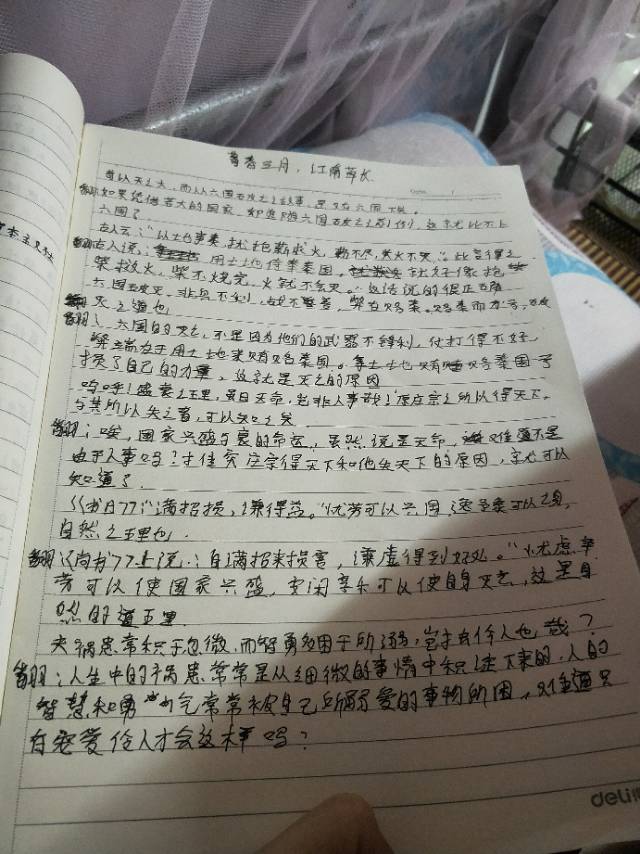 青春三月，江南草长
苟以天下之大，而从六国破亡之故事，是又在六国下矣。
翻如果凭借着大的国家，却追随六国破亡之前例，这就比不上
六国了
古人云："以地事秦，犹抱薪救火，薪不尽，火不灭。"此言得之
翻古人说：用土地侍奉秦国。就好像抱
柴救火，柴不烧完，火就不会灭。"这话说的很正确
六国破灭，非兵不利，战不善，弊在赂秦。赂秦而力亏，破
灭之道也
翻：六国的灭亡，不是因为他们的武器不锋利，仗打得不好
弊端在于用土地来贿赂秦国。
损了自己的力量，这就是灭亡的原因
呜呼！盛衰之理，虽曰天命，岂非人事哉！原庄宗之所以得天下，
与其所以失之者，可以知之矣
翻：唉，国家兴盛与衰的命运，虽然说是天命，难道不是
由于人事吗？推究庄宗得天下和他失天下的原因，就可以
知道了
《书曰》："满招损，谦得益。"忧劳可以兴国，逸豫可以亡身，
自然之理也．
翻《尚书》上说：自满招来损害，谦虚得到好处。"忧虑辛
劳可以使国家兴盛，安闲享乐可以使自身灭亡，这是自
然的道理
夫祸患常积于忽微，而智勇多困于所溺，岂独伶人也哉？
翻：人生中的祸患常常是从细微的事情中积连下来的，人的
智慧和勇气常常被自己所溺爱的事物所困，难道只
有宠爱伶人才会这样吗？
deli